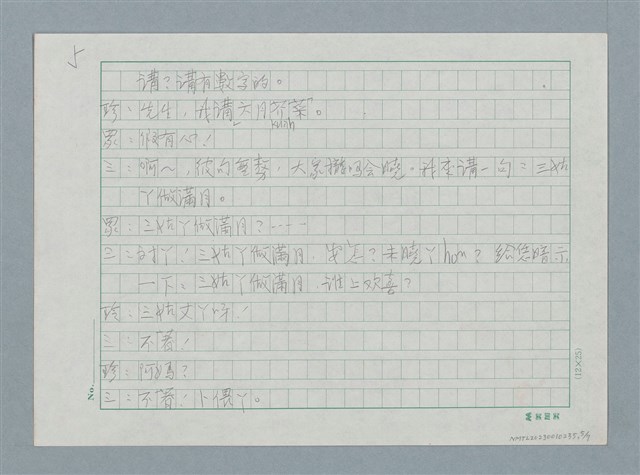 5
請？請有數字的。
珍：先生，我講六月芥菜。
kuah
眾：假有心！
三：啊～，彼句至勢，大家攏嘛會曉。我來講一句：三姑
丫做滿月。
眾：三姑丫做滿月？……
三：對丫！三姑丫做滿月，安怎？未曉丫hon？給您暗示
一下：三姑丫做滿月，誰上欢喜？
珍：三姑丈丫呀！
三：不著！
珍：阿媽？
三：不著！卜偎丫。
No.
(12×25)